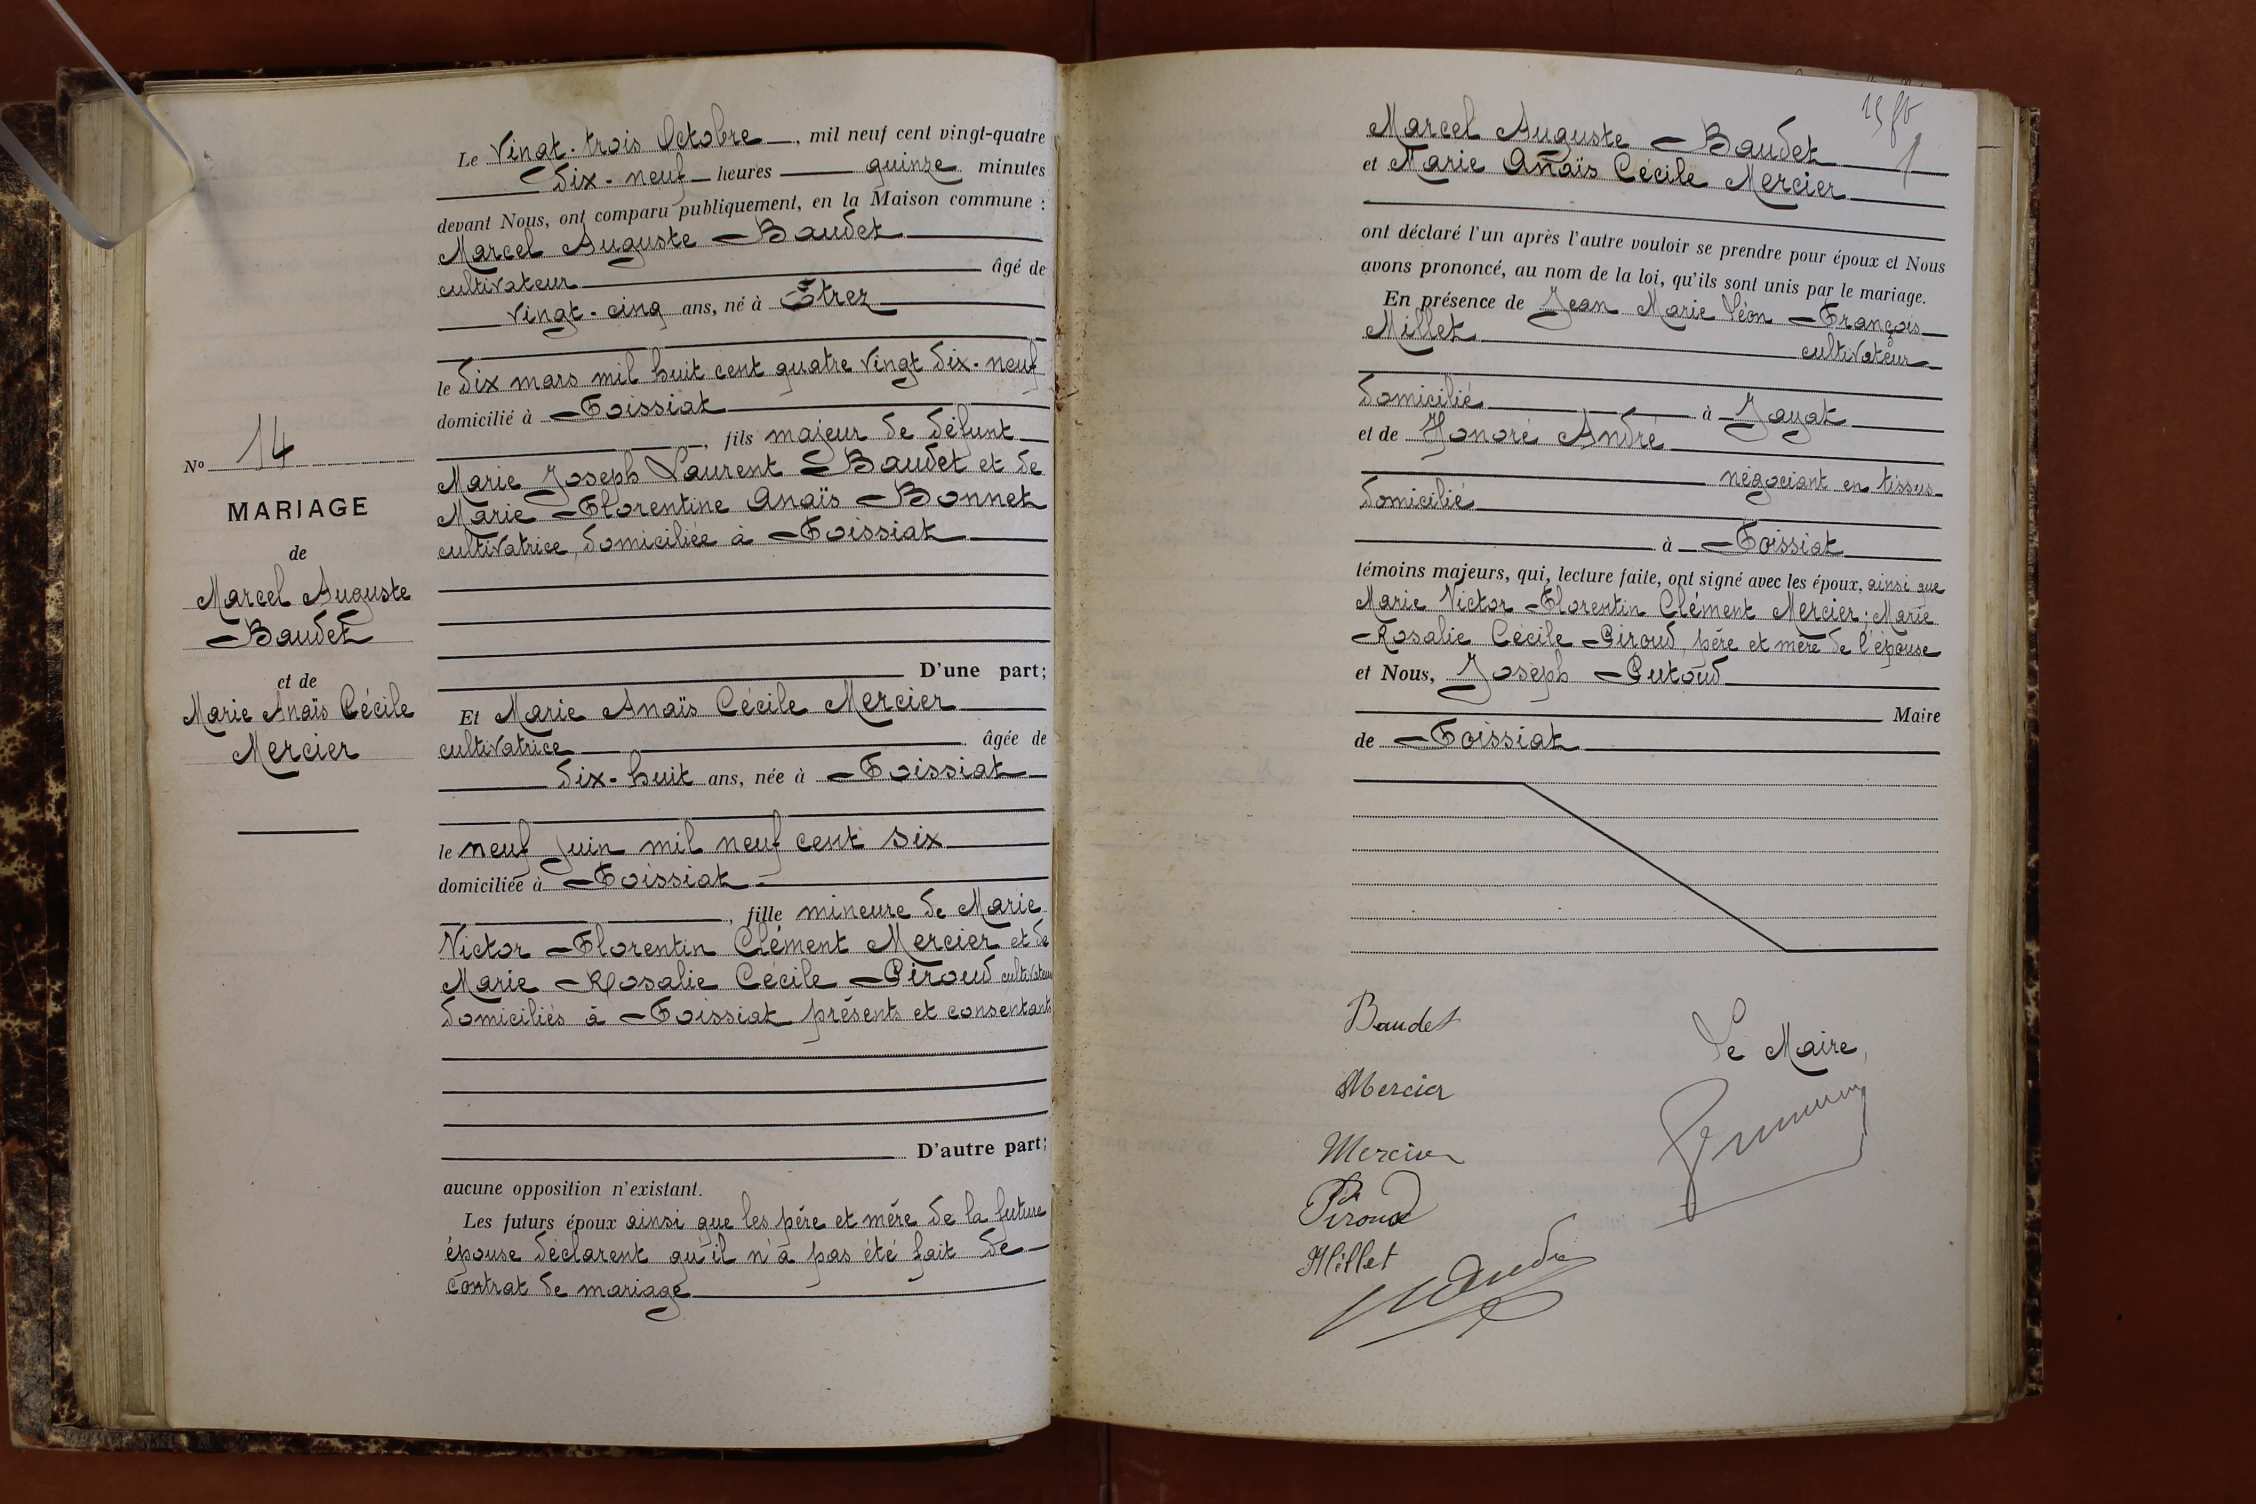 Le Vingt-trois Octobre, mil neuf cent vingt-quatre
dix-neuf heures quinze minutes
devant Nous, ont comparu publiquement, en la Maison commune :
Marcel Auguste Baudet
cultivateur âgé de
vingt-cinq ans, né à Etrez
le dix mars mil huit cent quatre vingt dix-neuf
domicilié à Foissiat
, fils majeur de défunt
Marie Joseph Laurent Baudet et de
Marie Florentine Anaïs Bonnet
cultivatrice, domiciliée à Foissiat
D'une part;
Et Marie Anaïs Cécile Mercier
cultivatrice âgée de
dix-huit ans, née à Foissiat
le neuf juin mil neuf cent six
domiciliée à Foissiat
, fille mineure de Marie
Victor Florentin Clément Mercier et de
Marie Rosalie Cécile Piroud cultivateurs
domiciliés à Foissiat présents et consentants
D'autre part;
aucune opposition n'existant.
Les futurs époux ainsi que les père et mère de la future
épouse déclarent qu'il n'a pas été fait de
contrat de mariage
No 14
MARIAGE
de
Marcel Auguste
Baudet
et de
Marie Anaïs Cécile
Mercier
Marcel Auguste Baudet
et Marie Anaïs Cécile Mercier
ont déclaré l'un après l'autre vouloir se prendre pour époux et Nous
avons prononcé, au nom de la loi, qu'ils sont unis par le mariage.
En présence de Jean Marie Léon François
Millet cultivateur
domicilié à Jayat
et de Honoré André
négociant en tissus
domicilié
à Foissiat
témoins majeurs, qui, lecture faite, ont signé avec les époux, ainsi que
Marie Victor Florentin Clément Mercier; Marie
Rosalie Cécile Piroud, père et mère de l'épouse
et Nous, Joseph Putoud
Maire
de Foissiat
Baudet
Le Maire,
Mercier
Mercier
Piroud
Millet